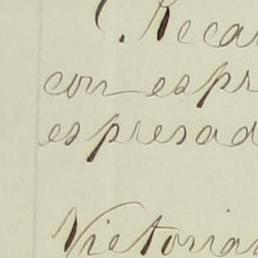 C. Recar
con espr
espresad
Victorian